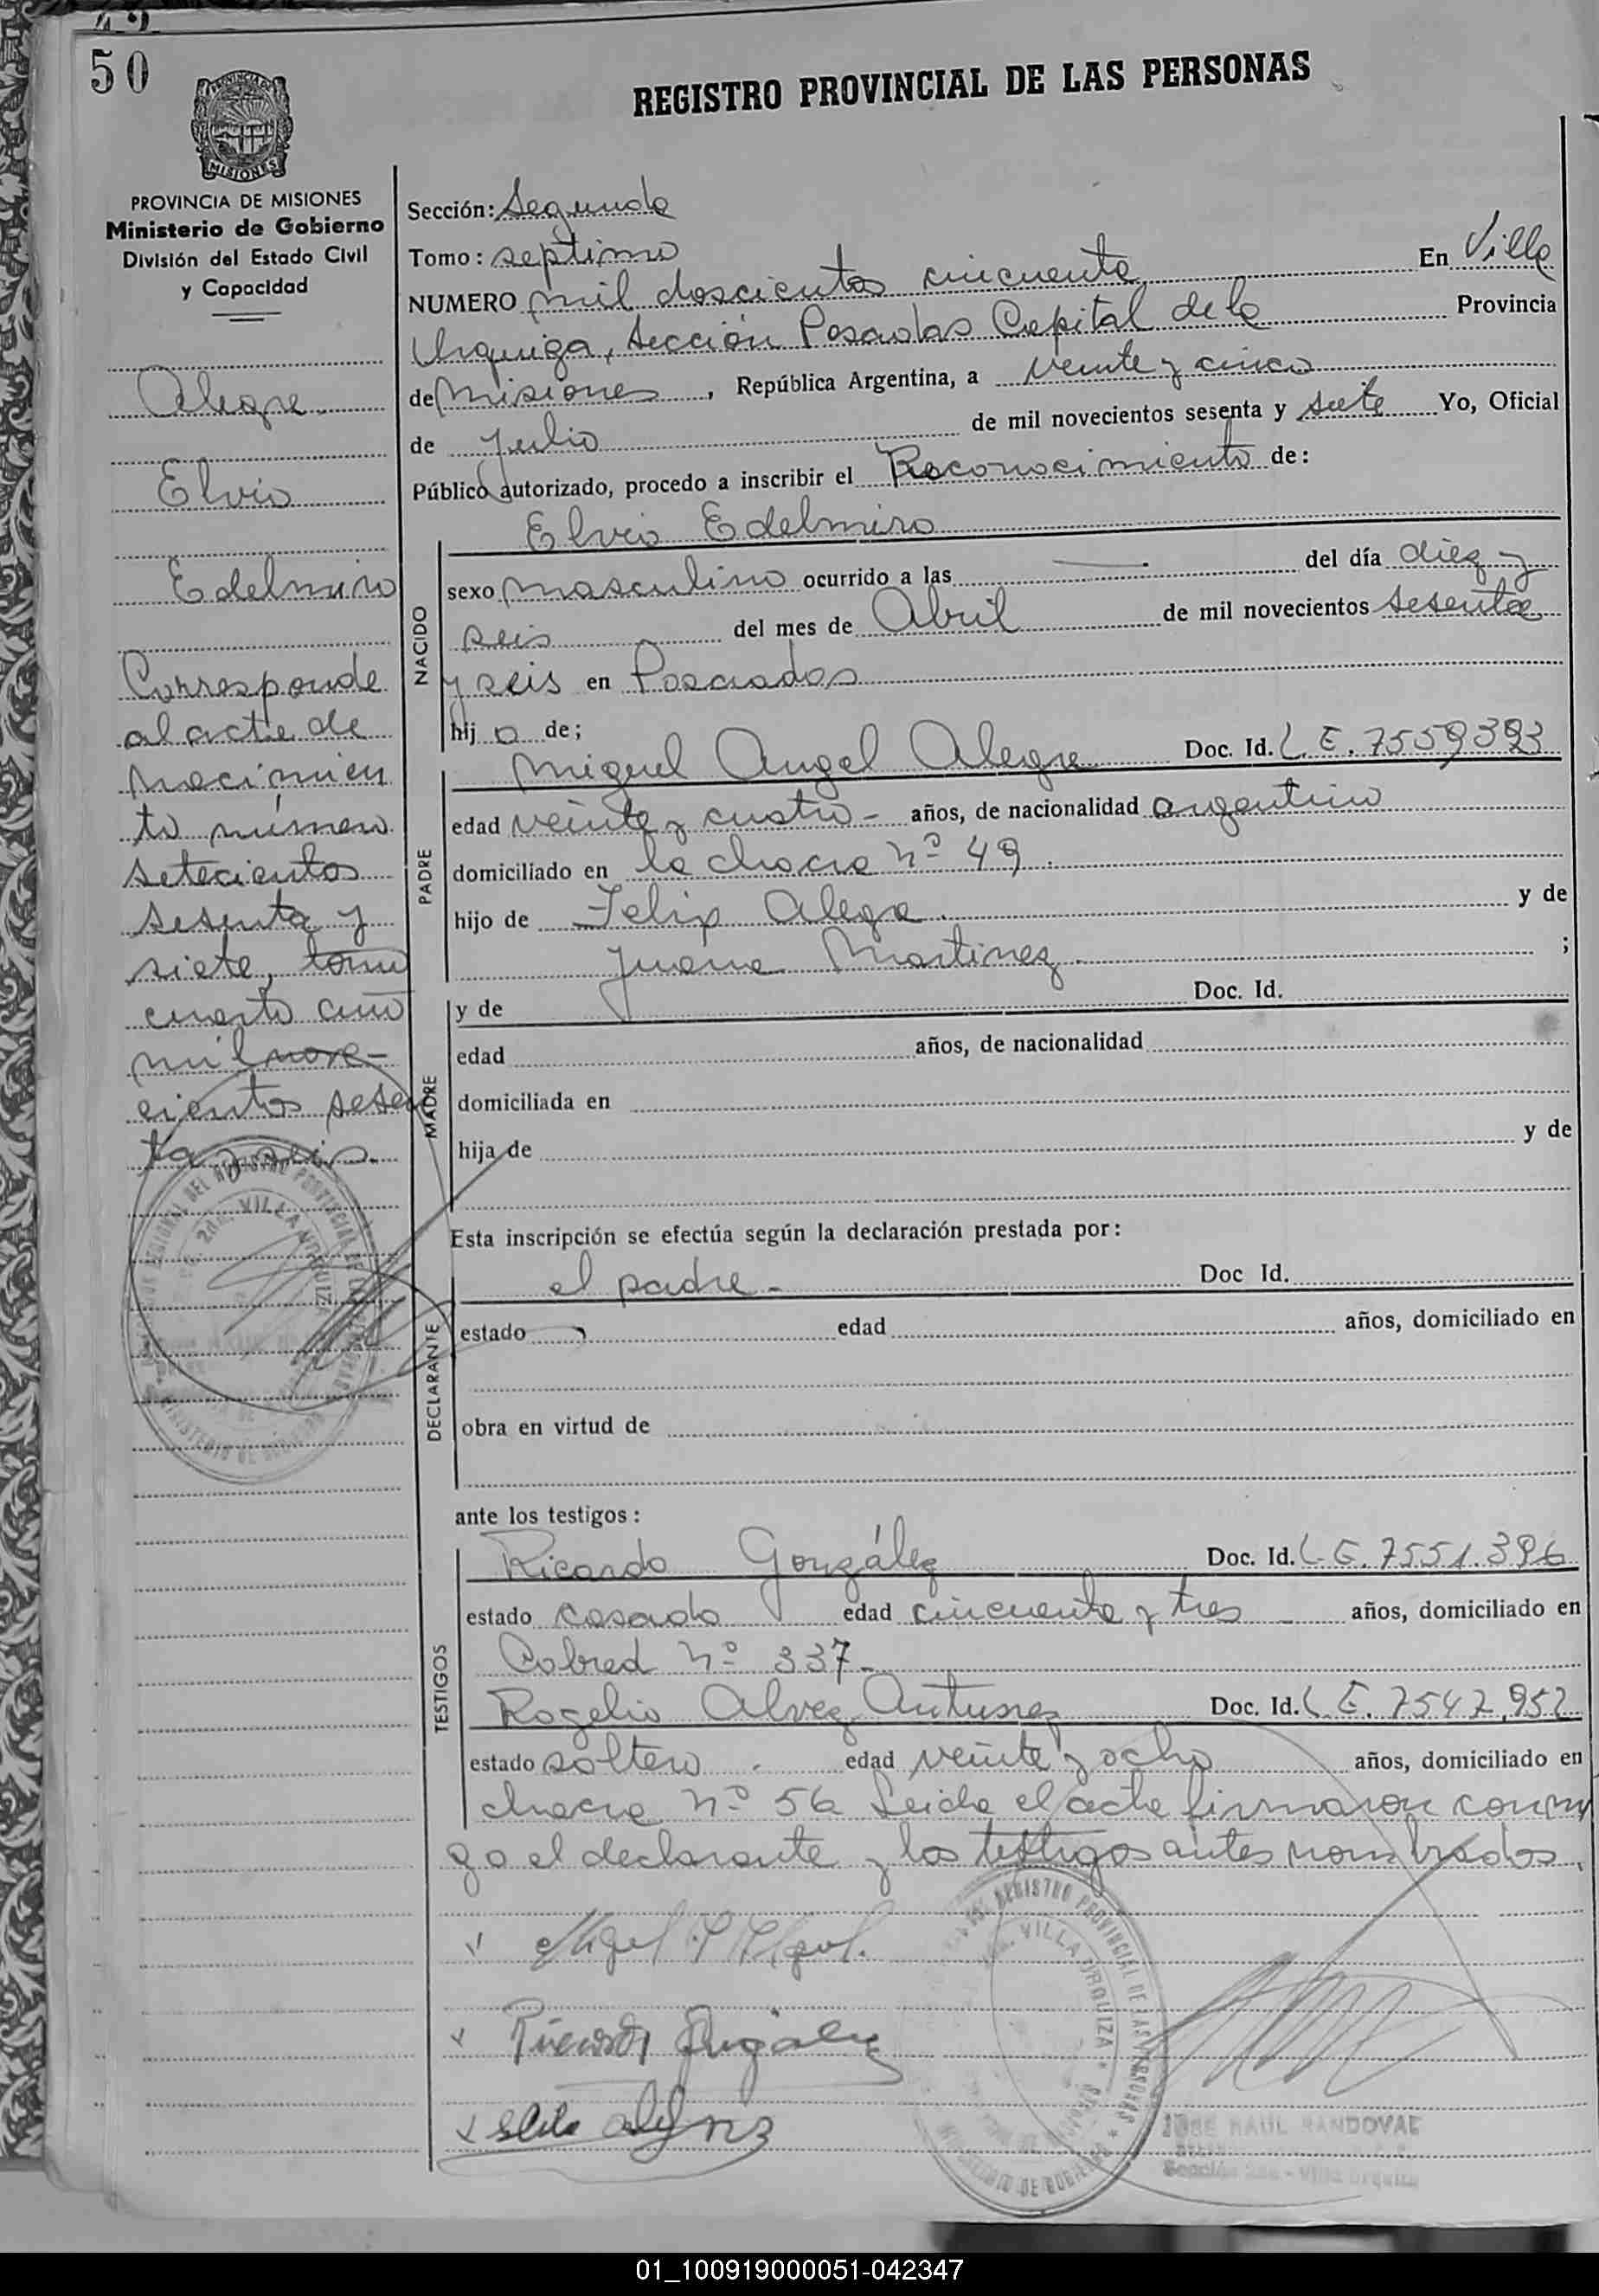 50
REGISTRO PROVINCIAL DE LAS PERSONAS
MISIONES
PROVINCIA DE MISIONES
Ministerio de Gobierno
División del Estado Civil
y Capacidad
Alegre
Elvio
Edelmiro
Corresponde
al acta de
nacimien
to número
setecientos
sesenta y
siete, tomo
cuarto año
mil nove-
cientos sesen
ta y seis.
Sección: Segunda
Tomo: septimo
NUMERO mil doscientos cincuenta En Villa
Urquiza, Sección Posadas Capital de la Provincia
de Misiones, República Argentina, a veinte y cinco
de Julio de mil novecientos sesenta y siete Yo, Oficial
Público autorizado, procedo a inscribir el Reconocimiento de:
NACIDO
Elvio Edelmiro
sexo masculino ocurrido a las — del día diez y
seis del mes de Abril de mil novecientos sesenta
y seis en Posadas
hij o de;
PADRE
Miguel Angel Alegre Doc. Id. L.E. 7559393
edad veinte y cuatro - años, de nacionalidad argentino
domiciliado en la chacra nº 49.
hijo de Felix Alegre. y de
Juana Martinez. ;
MADRE
y de Doc. Id.
edad años, de nacionalidad
domiciliada en
hija de y de
Esta inscripción se efectúa según la declaración prestada por:
DECLARANTE
el padre - Doc Id.
estado edad años, domiciliado en
obra en virtud de
ante los testigos:
TESTIGOS
Ricardo González Doc. Id. L.E. 7551.396
estado casado edad cincuenta y tres - años, domiciliado en
Cabred nº 337-
Rogelio Alvez Antunez Doc. Id. L.E. 7547.952
estado soltero. edad veinte y ocho años, domiciliado en
chacra nº 56 Leida el acta firmaron conmi
go el declarante y los testigos antes nombrados.
REGISTRO PROVINCIAL DE LAS PERSONAS
VILLA URQUIZA
JOSE RAUL SANDOVAL
Sección 2da - Villa Urquiza
01_100919000051-042347